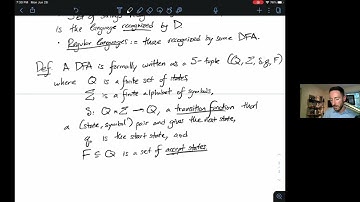 7:30 PM Mon Jun 28
Set of strings
is the language recognized by D.
• Regular languages := those recognized by some DFA.
Def A DFA is formally written as a 5-tuple (Q, Σ, δ, q, F)
where Q is a finite set of states,
Σ is a finite alphabet of symbols,
δ: Q × Σ → Q, a transition function that
a (state, symbol) pair and gives the next state,
q is the start state, and
F ⊆ Q is a set of accept states.